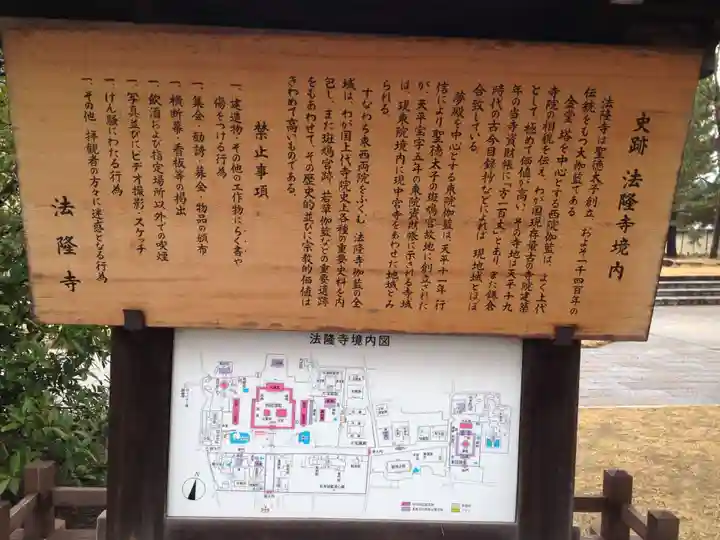 史跡 法隆寺境内
法隆寺は聖徳太子創立、およそ一千四百年の
伝統をもつ大伽藍である
金堂、塔を中心とする西院伽藍は、よく上代
寺院の相貌を伝え、わが国現存最古の寺院建築
として、極めて価値が高い、その寺地は天平十九
年の当寺資財帳に「方一百丈」とあり、また鎌倉
時代の古今目録抄などによれば、現地域とほぼ
合致している。
夢殿を中心とする東院伽藍は、天平十一年、行
信により聖徳太子の斑鳩宮故地に創立された
が、天平宝字五年の東院資財帳に示される寺域
は、現東院境内に現中宮寺をあわせた地域とみ
られる。
すなわち東西両院をふくむ、法隆寺伽藍の全
域は、わが国上代寺院史上各種の重要史料を内
包し、また斑鳩宮跡、若草伽藍などの重要遺跡
をもあわせて、その歴史的並びに宗教的価値は
きわめて高いものである。
禁止事項
一、建造物、その他の工作物にらく書や
傷をつける行為
一、集会、勧誘、募金、物品の頒布
一、横断幕、看板等の掲出
一、飲酒および指定場所以外での喫煙
一、写真並びにビデオ撮影、スケッチ
一、けん騒にわたる行為
一、その他、拝観者の方々に迷惑となる行為
法隆寺
法隆寺境内図
N